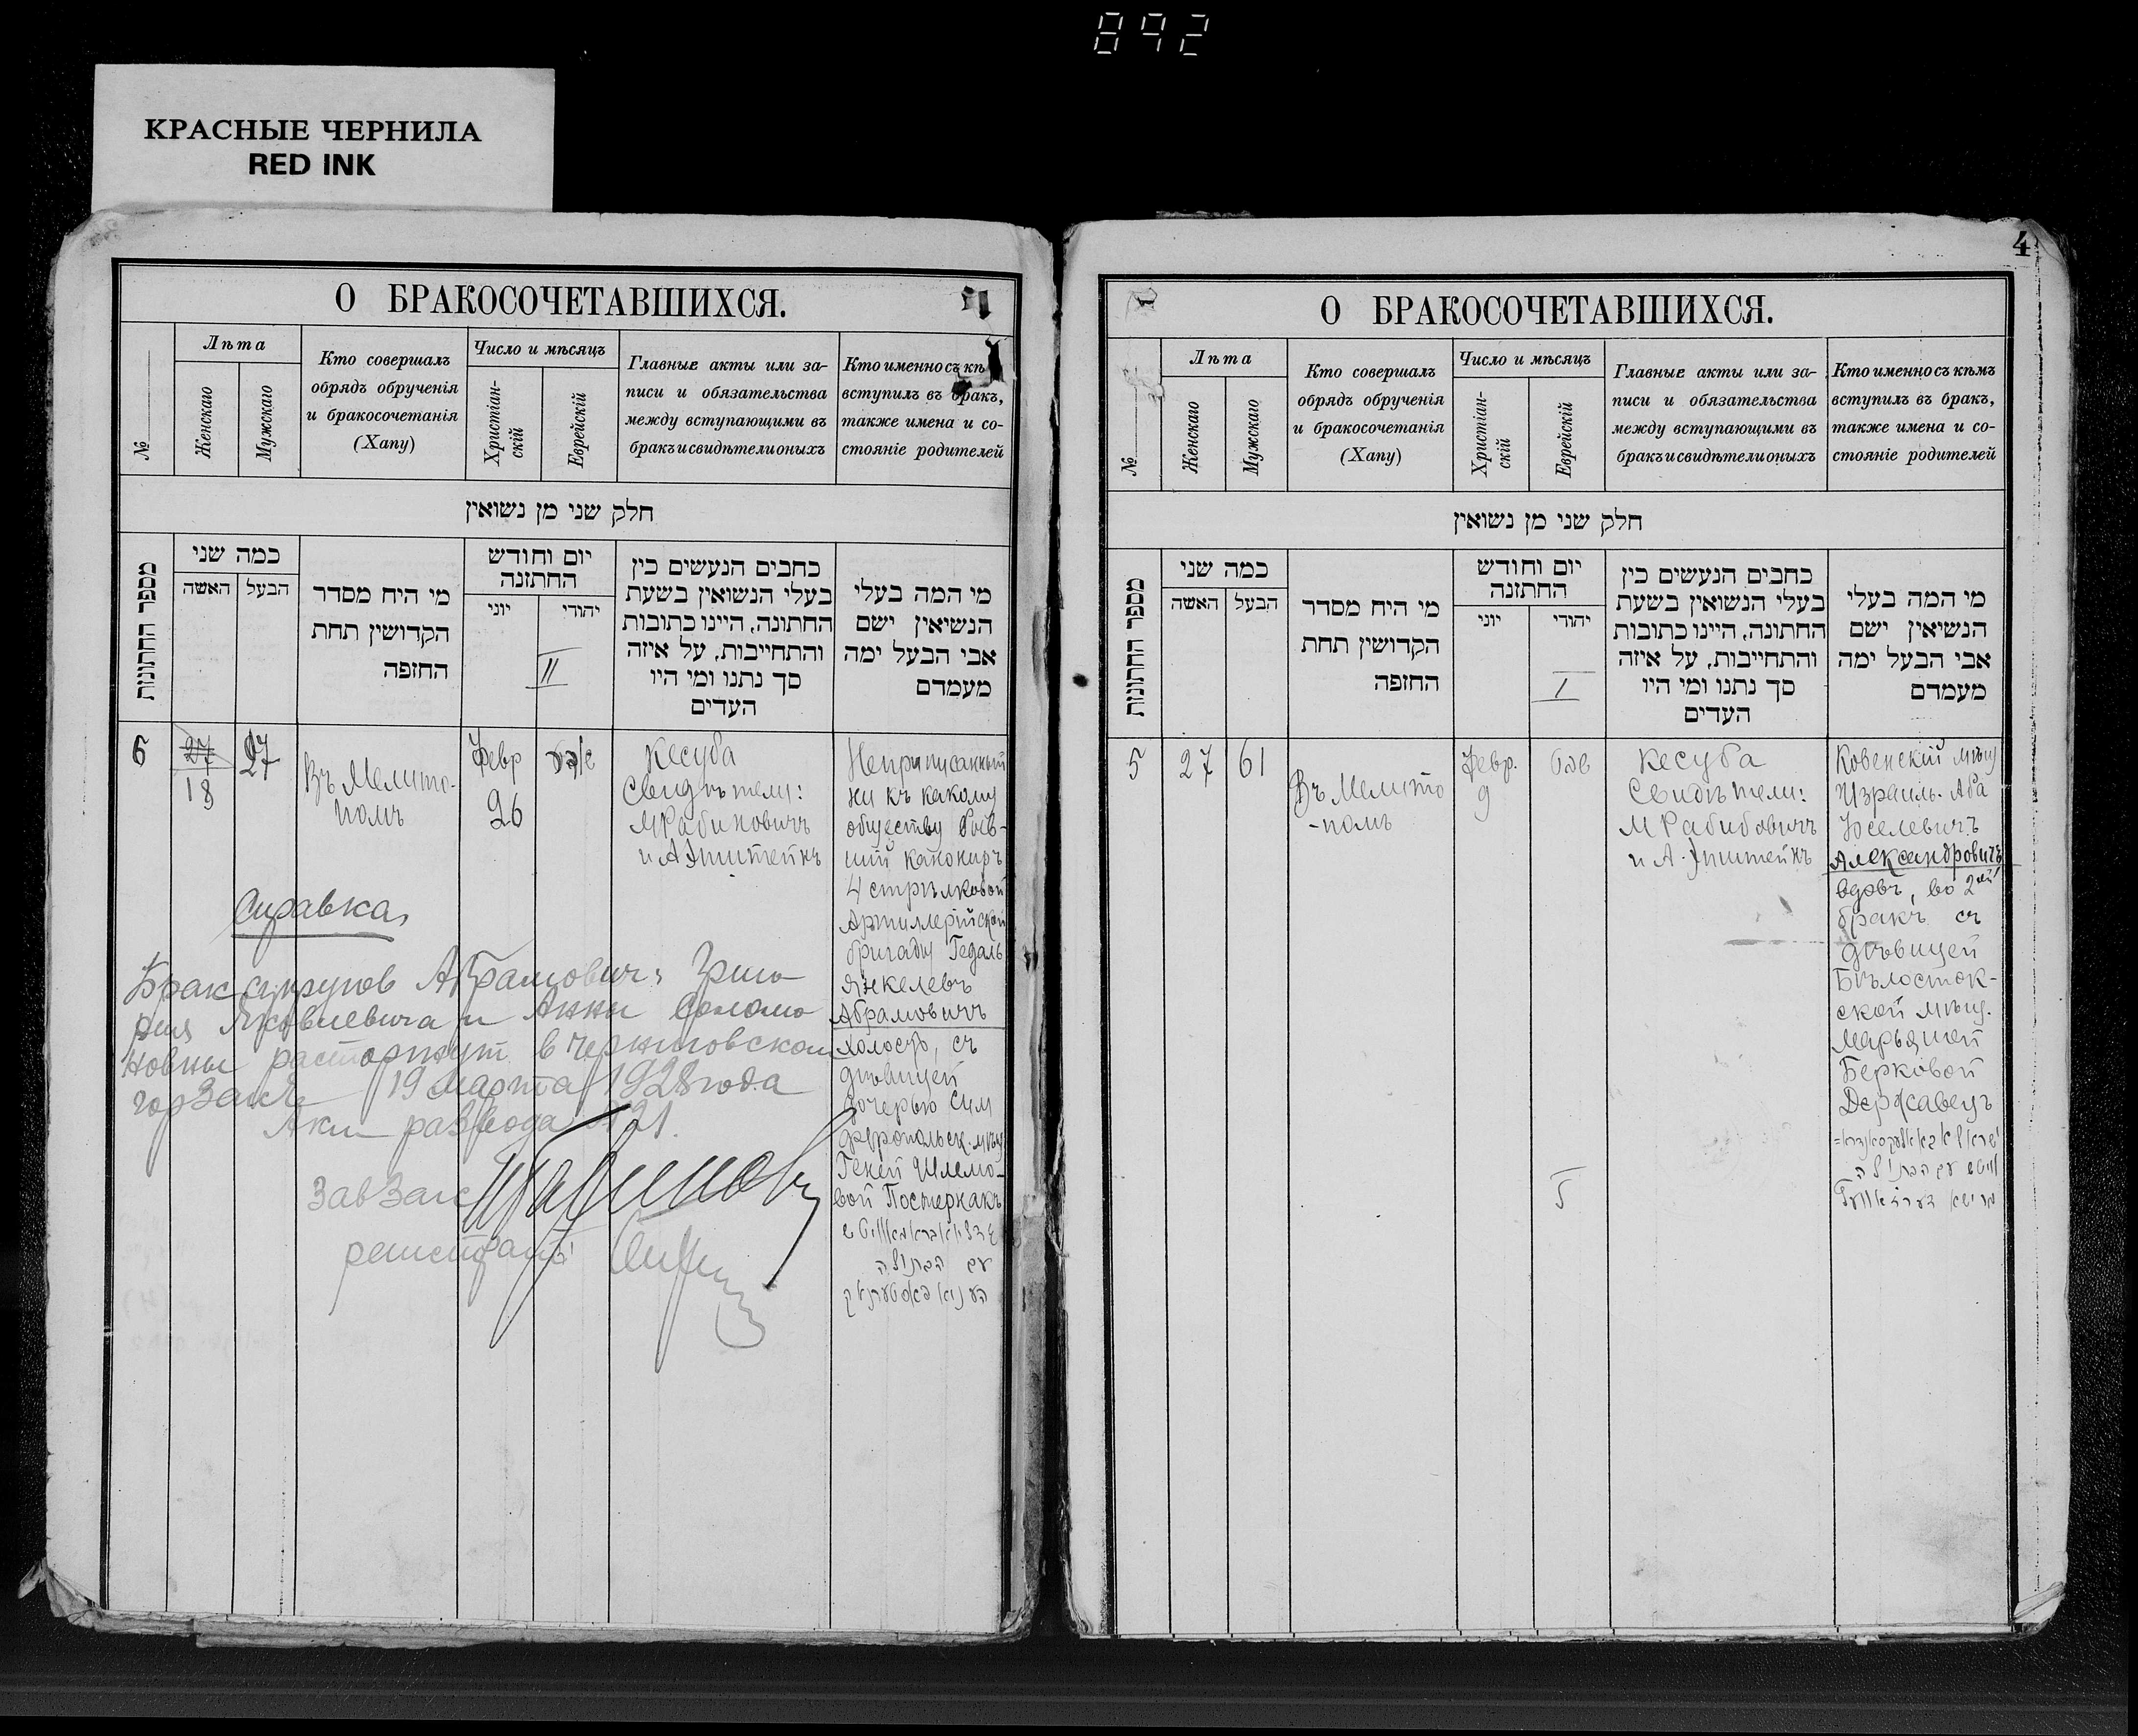 892
КРАСНЫЕ ЧЕРНИЛА
RED INK
О БРАКОСОЧЕТАВШИХСЯ.
№
Лѣта
Женскаго
Мужскаго
Кто совершалъ
обрядъ обрученія
и бракосочетанія
(Хапу)
Число и мѣсяцъ
Христіан-
скій
Еврейскій
Главные акты или за-
писи и обязательства
между вступающими въ
бракъ и свидѣтели оныхъ
Кто именно съ кѣ
вступилъ въ бракъ,
также имена и со-
стояніе родителей
חלק שני מן נשואין
מספר החתונות
כמה שני
האשה
הבעל
מי היח מסדר
הקדושין תחת
החזפה
יום וחודש
החתזנה
יוני
יהודי
II
כחבים הנעשים כין
בעלי הנשואין בשעת
החתונה, היינו כתובות
והתחייבות, על איזה
סך נתנו ומי היו
העדים
מי המה בעלי
הנשיאין ישם
אבי הבעל ימה
מעמדם
6
27
18
27
Въ Мелито-
полѣ
Февр
26
Кесуба
Свидѣтели:
М Рабиновичъ
и А Эпштейнъ
Неприписанный
ни къ какому
обществу быв-
шій канониръ
4 стрѣлковой
Артиллерійской
бригады Гедаль
Янкелевъ
Абрамовичъ
холостъ, съ
дѣвицей
дочерью Сим
феропольск. мѣщ
Геней Шлемо-
вой Постернакъ
עם הבתולה
Справка,
Брак супругов Абрамович: Григо
рия Яковлевича и Анны Соломо
новны расторгнут в Черниговском
горЗагсе 19 марта 1928 года
Акт развода № 21.
ЗавЗагс
регистратор
4
О БРАКОСОЧЕТАВШИХСЯ.
№
Лѣта
Женскаго
Мужскаго
Кто совершалъ
обрядъ обрученія
и бракосочетанія
(Хапу)
Число и мѣсяцъ
Христіан-
скій
Еврейскій
Главные акты или за-
писи и обязательства
между вступающими въ
бракъ и свидѣтели оныхъ
Кто именно съ кѣмъ
вступилъ въ бракъ,
также имена и со-
стояніе родителей
חלק שני מן נשואין
מספר החתונות
כמה שני
האשה
הבעל
מי היח מסדר
הקדושין תחת
החזפה
יום וחודש
החתזנה
יוני
יהודי
I
כחבים הנעשים כין
בעלי הנשואין בשעת
החתונה, היינו כתובות
והתחייבות, על איזה
סך נתנו ומי היו
העדים
מי המה בעלי
הנשיאין ישם
אבי הבעל ימה
מעמדם
5
27
61
Въ Мелито
-полѣ
Февр.
9
שבט
Кесуба
Свидѣтели:
М Рабибовичъ
и А. Эпштейнъ
Ковенскій мѣщ
Израиль-Аба
Іоселевичъ
Александровичъ
вдовъ, во 2ой
бракъ съ
дѣвицей
Бѣлосток-
ской мѣщ.
Марьяшей
Берковой
Державецъ
עם הבתולה